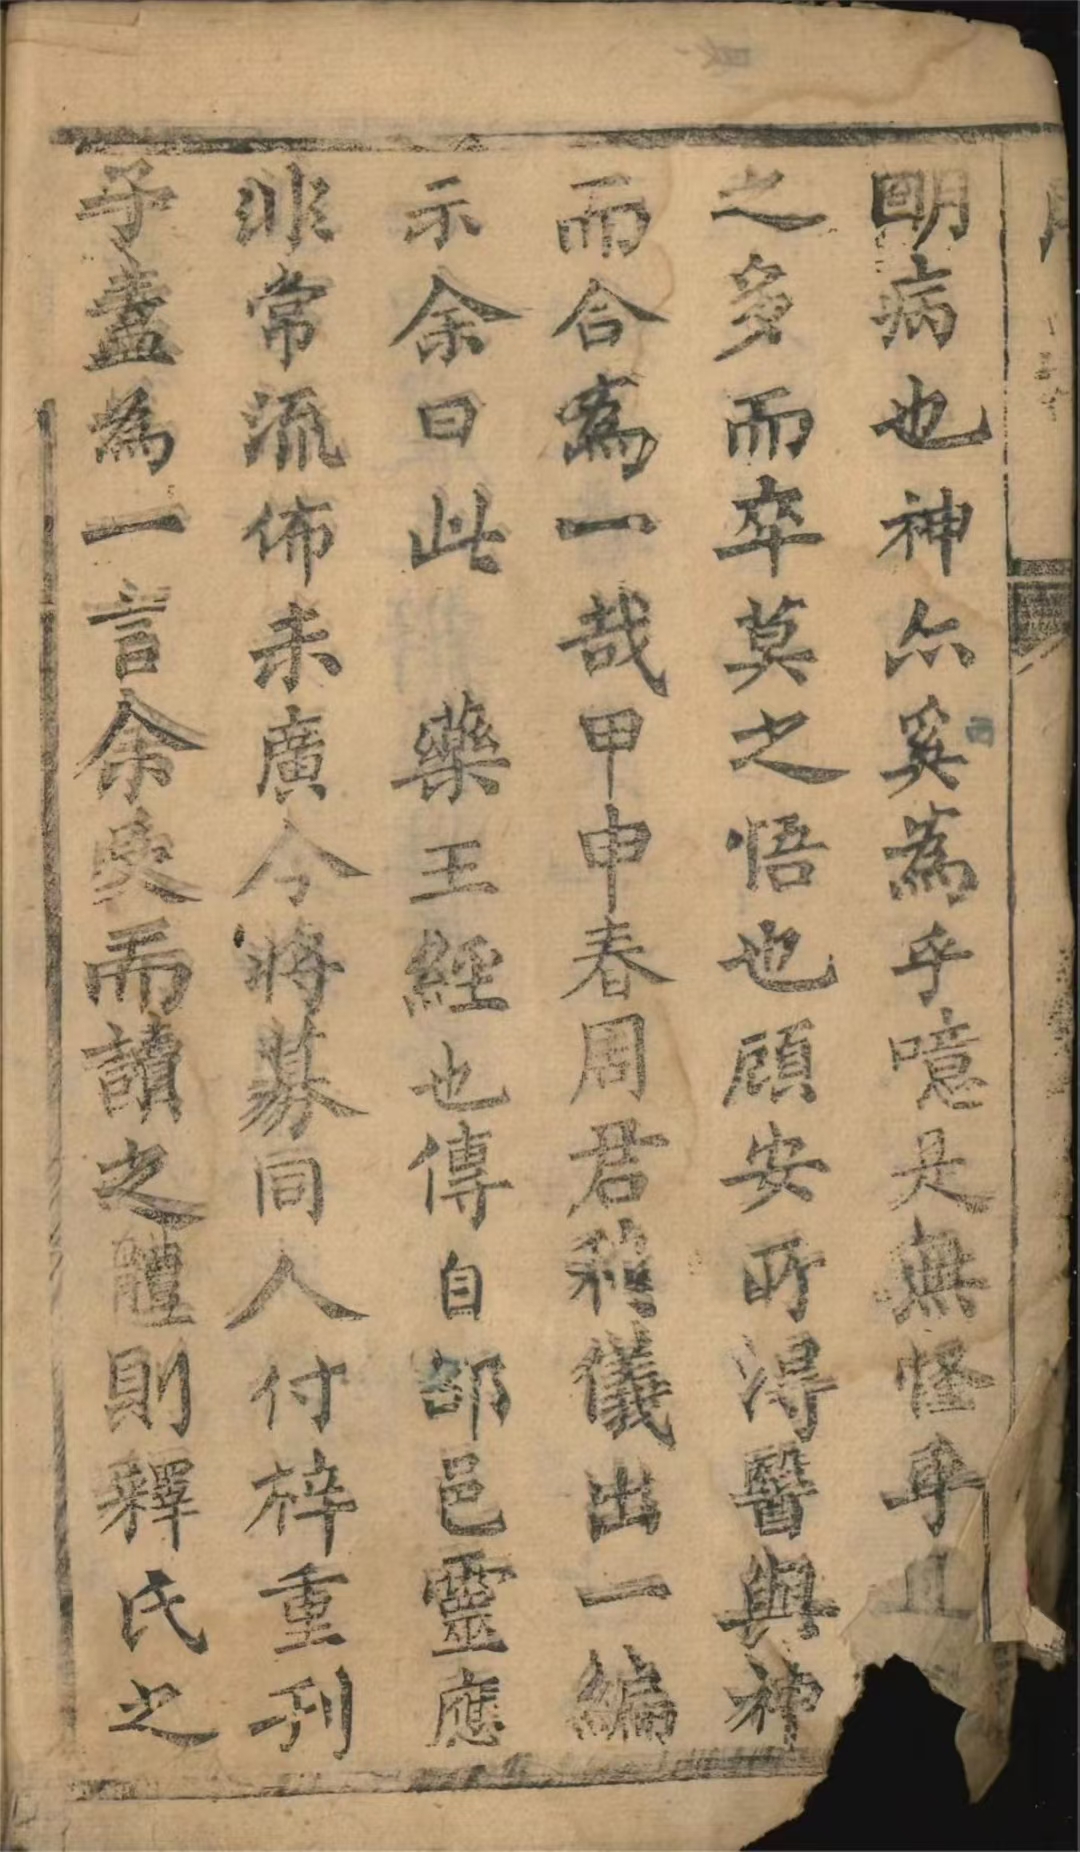 明病也神尒奚為乎噫是無怪耳且
之多而卒莫之悟也顧安所淂醫與神
而合為一哉甲申春周君穪儀出一編
示余曰此　藥王經也傳自郃邑靈應
非常流佈未廣今將募同人付梓重刋
子盍為一言余受而讀之體則釋氏之